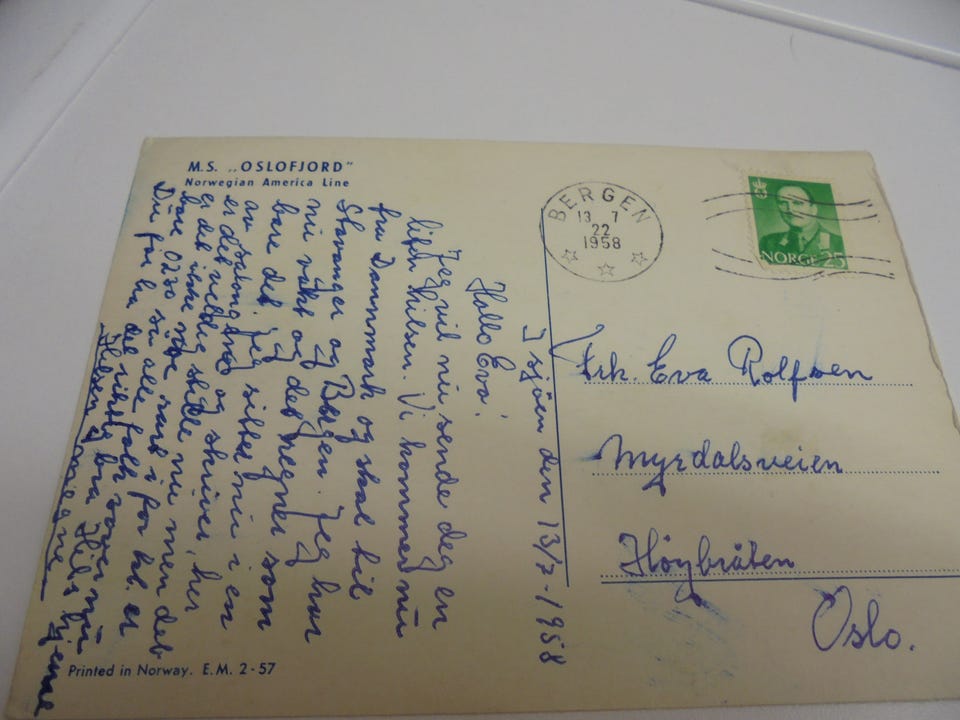 M.S. „OSLOFJORD”
Norwegian America Line
I sjöen den 13/7-1958
Hallo Eva!
Jeg vil nu sende deg en
liten hilsen. Vi kommer nu
fra Dannmark og skal til
Stavanger og Bergen. Jeg har
nu vakt og det regner som
bare det. Jeg sitter nu i en
av salong og skriver, her
er det veldig stille nu men det
er det ikke rart for kl. er
bare 0230 så alle folk sover nu
Du får ha det riktig bra. Hils hjemme
Hilsen
BERGEN
13 7
22
1958
NORGE 25
Frk. Eva Rolfsen
Myrdalsveien
Høybråten
Oslo.
Printed in Norway. E.M. 2-57